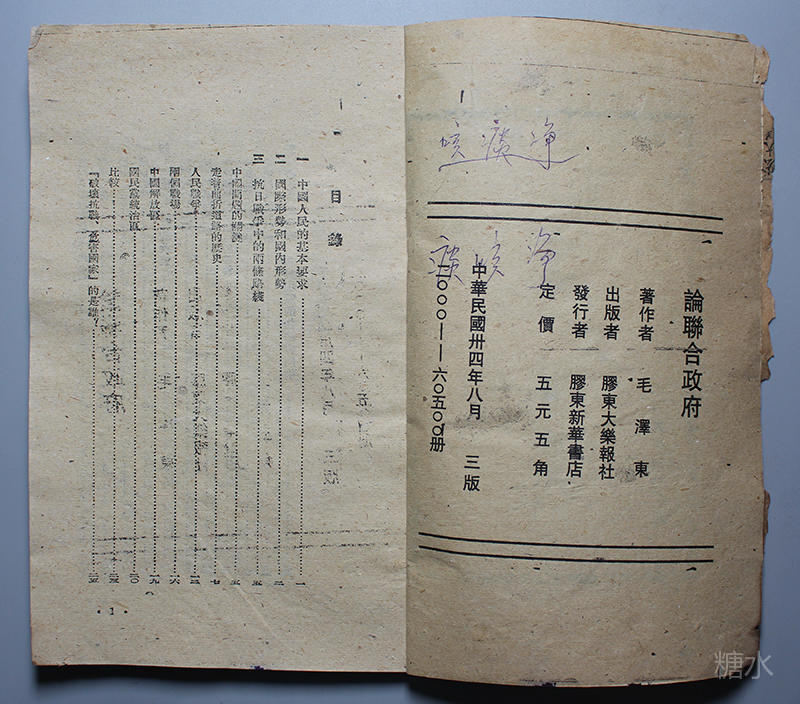 咳痰净
痰咳净
論聯合政府
著作者 毛澤東
出版者 膠東大樂報社
發行者 膠東新華書店
定價 五元五角
中華民國卅四年八月 三版
二〇〇〇——六〇五〇〇册
目錄
一 中國人民的基本要求……一
二 國際形勢和國內形勢……二
三 抗日戰爭中的兩條路綫……五
中國問題的關鍵……五
走着曲折道路的歷史……七
人民戰爭……一三
兩個戰場……一六
中國解放區……一九
國民黨統治區……二〇
比較……
『破壞抗戰、危害國家』的是誰?……二五
·1·
糖水